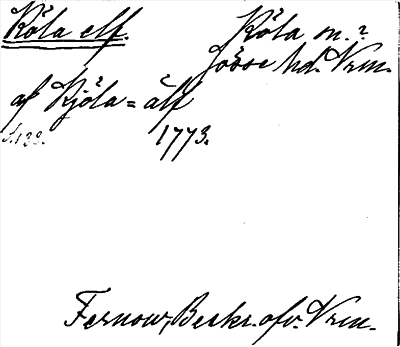 Köla elf.
Köla sn.?
Jösse hd. Vrm.
af Kjöla = älf
S. 133. 1773.
Fernow, Beskr. öfv. Vrm.